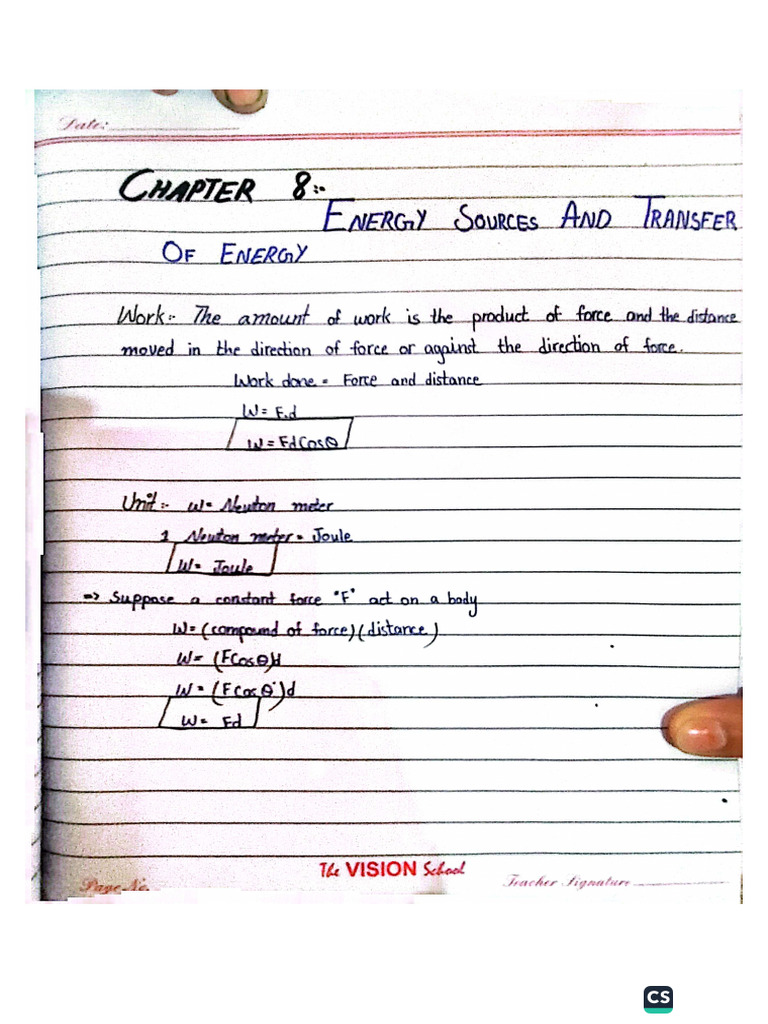 Date:
CHAPTER 8:-
ENERGY SOURCES AND TRANSFER
OF ENERGY
Work:- The amount of work is the product of force and the distance
moved in the direction of force or against the direction of force.
Work done = Force and distance
W = F.d
W = FdCosθ
Unit:- W= Newton meter
1 Newton meter = Joule
W= Joule
=> Suppose a constant force "F" act on a body
W= (compound of force)(distance)
W= (FCosθ)d
W= (Fcosθ°)d
W= Fd
The VISION School
Page No.
Teacher Signature
CS